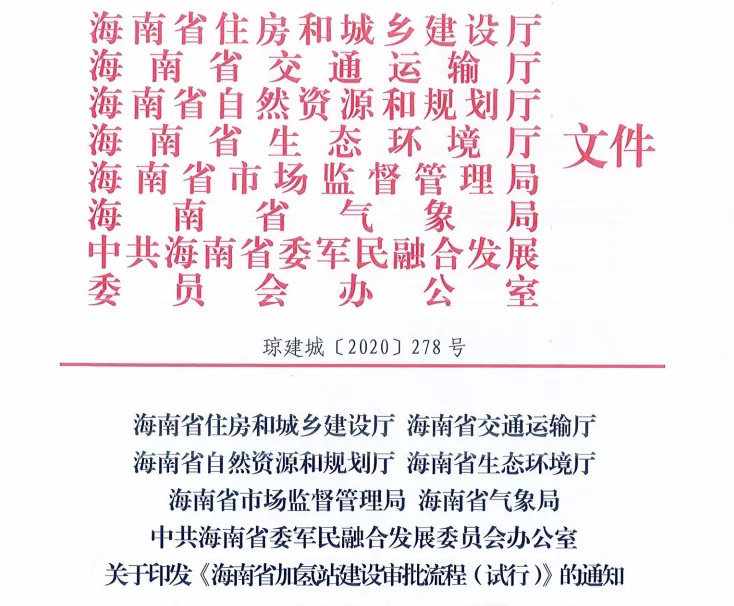 海南省住房和城乡建设厅
海南省交通运输厅
海南省自然资源和规划厅
海南省生态环境厅
文件
海南省市场监督管理局
海南省气象局
中共海南省委军民融合发展
委员会办公室
琼建城〔2020〕278号
海南省住房和城乡建设厅 海南省交通运输厅
海南省自然资源和规划厅 海南省生态环境厅
海南省市场监督管理局 海南省气象局
中共海南省委军民融合发展委员会办公室
关于印发《海南省加氢站建设审批流程（试行）》的通知